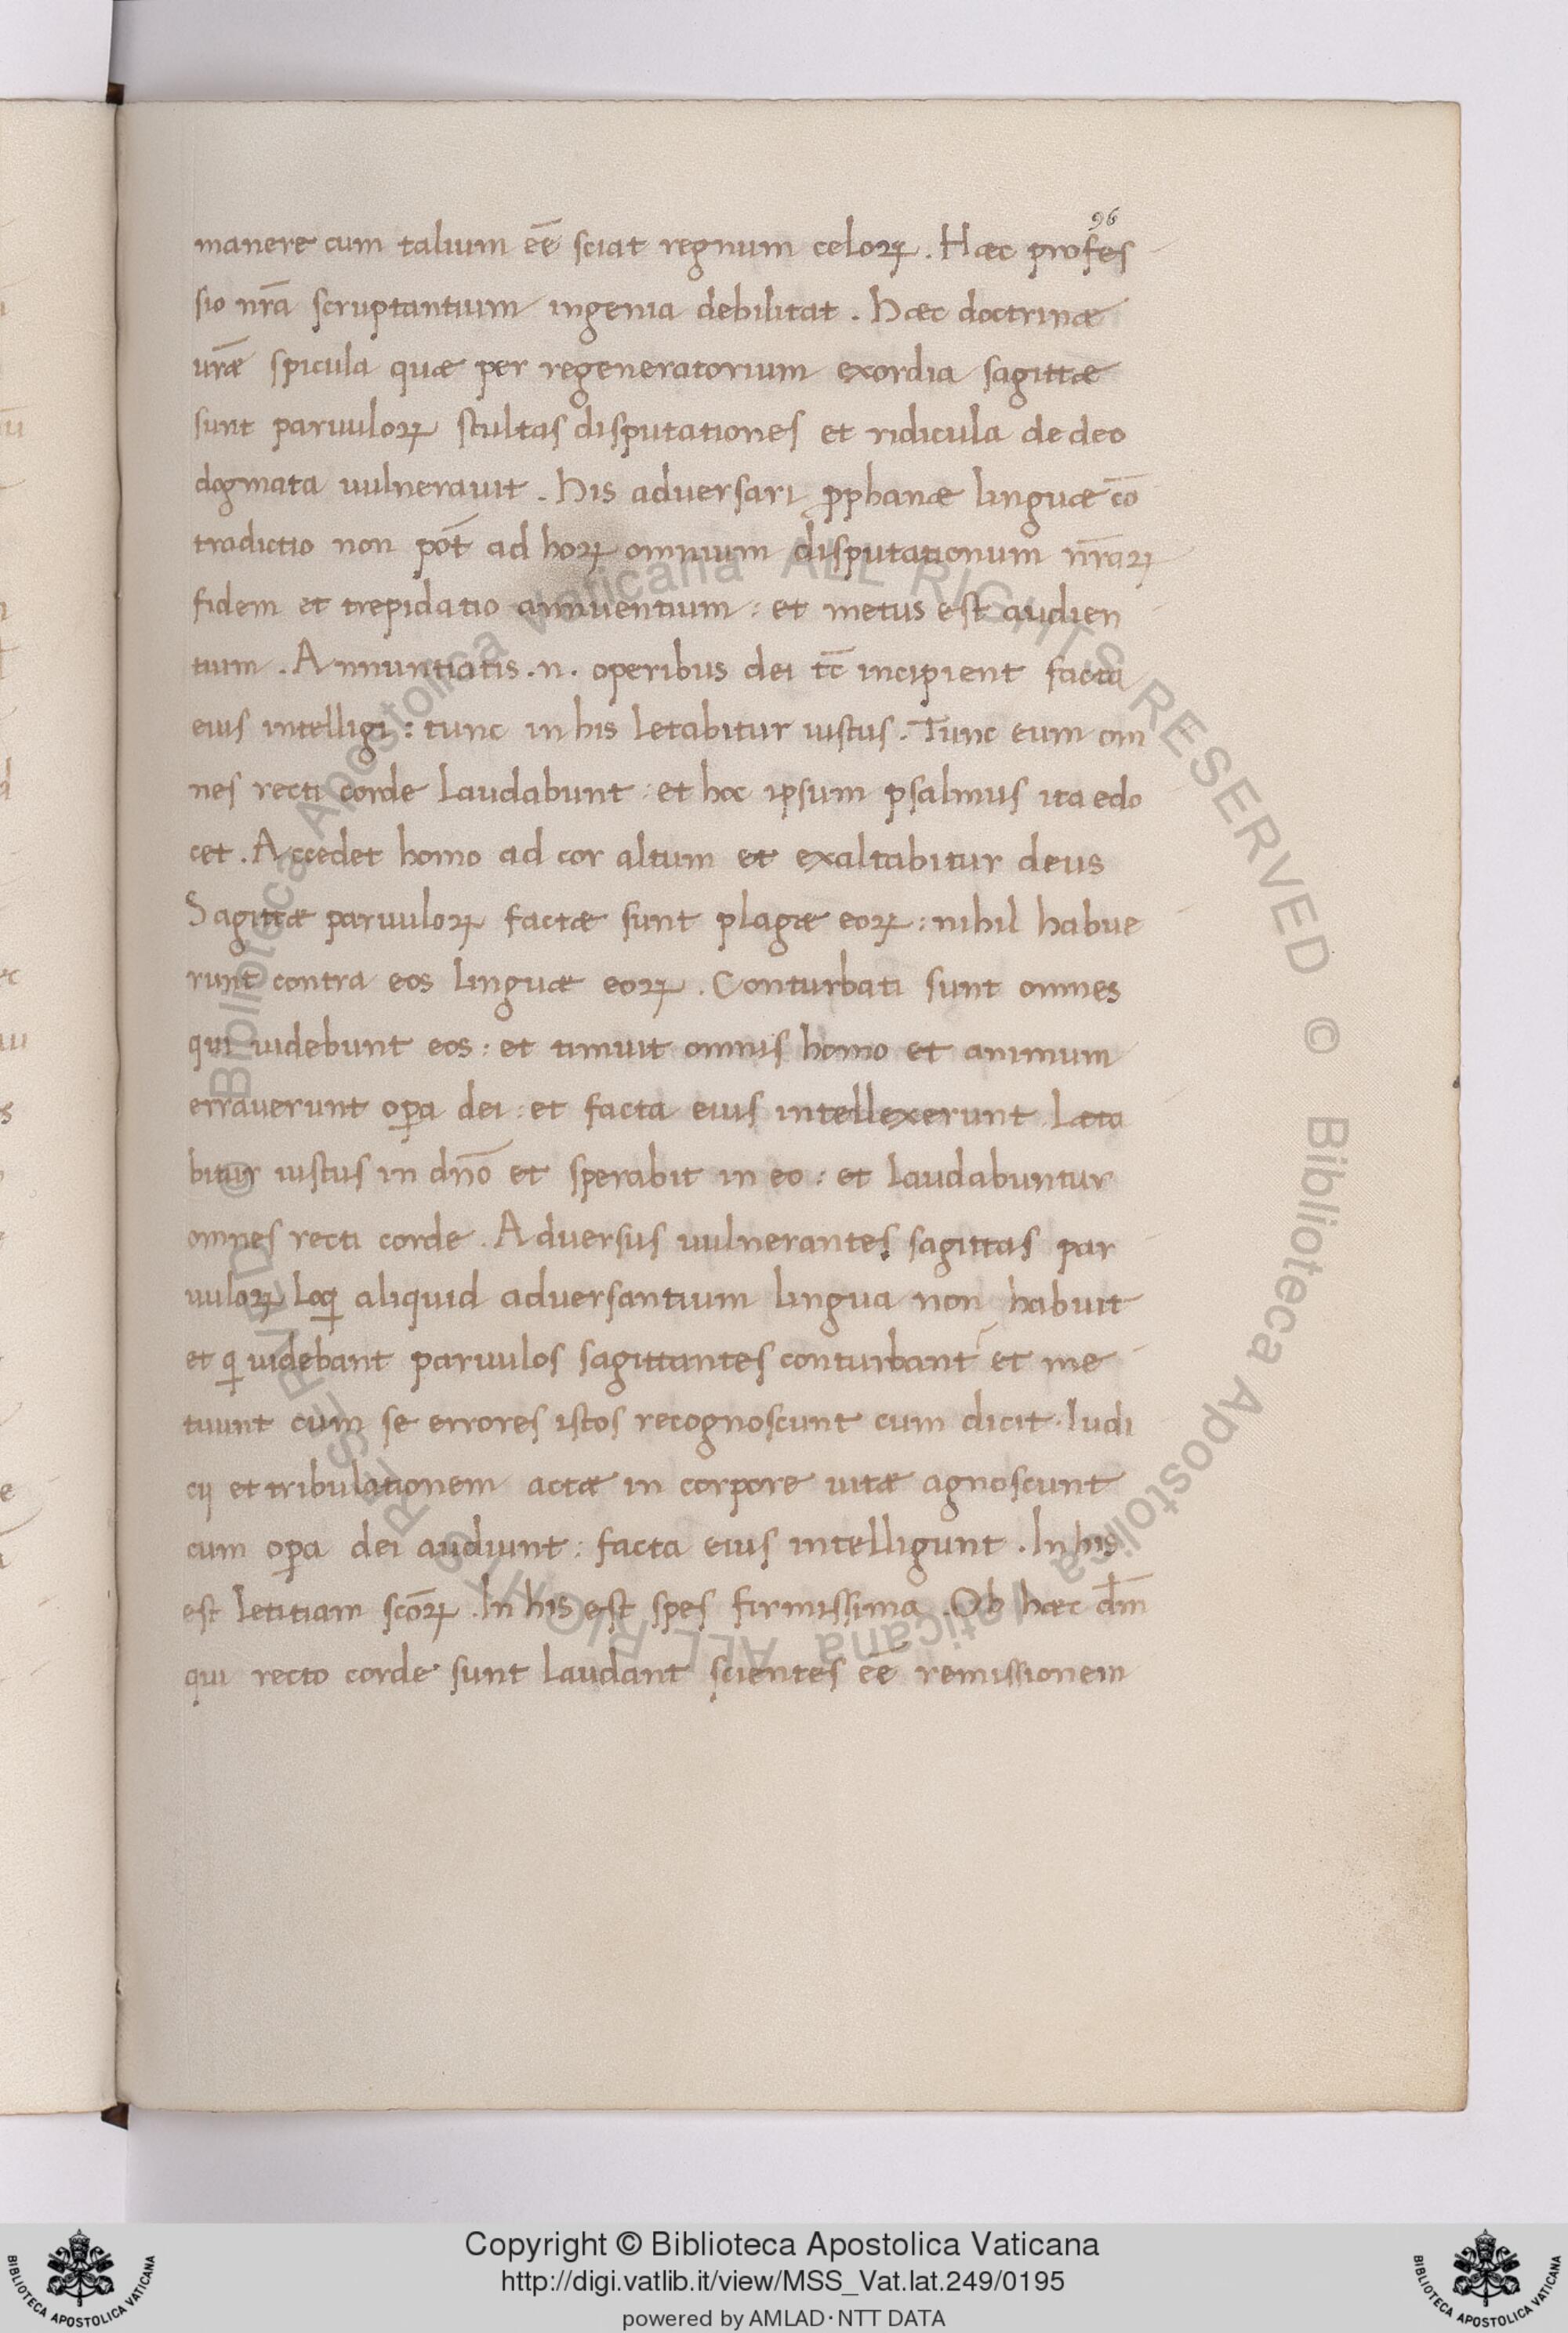 96
manere cum talium eē sciat regnum celoꝝ. Haec profes
sio nr̄a scruptantium ingenia debilitat. Haec doctrinae
ur̄ae spicula quae per regeneratorium exordia sagittae
sunt paruuloꝝ stultas disputationes et ridicula de deo
dogmata uulnerauit. His adversari ꝓphanae linguae cō
tradictio non pōt ad hoꝝ omnium disputationum nr̄aꝝ
fidem et trepidatio annuentium: et metus est audien
tium. Annuntiatis .n. operibus dei tc̄ incipient facta
eius intelligi: tunc in his letabitur iustus. Tunc eum om
nes recti corde laudabunt: et hoc ipsum psalmus ita edo
cet. Accedet homo ad cor altum et exaltabitur deus
Sagittae paruuloꝝ factae sunt plagae eoꝝ: nihil habue
runt contra eos linguae eoꝝ. Conturbati sunt omnes
qui uidebunt eos: et timuit omnis homo et animum
erraverunt oꝑa dei: et facta eius intellexerunt. Laeta
bitur iustus in dn̄o et sperabit in eo: et laudabuntur
omnes recti corde. Adversus uulnerantes sagittas par
uuloꝝ loqi aliquid adversantium lingua non habuit
et qi uidebant paruulos sagittantes conturbant᷑ et me
tuunt cum se errores istos recognoscunt cum dicit. Iudi
cij et tribulationem actae in corpore uitae agnoscunt
cum oꝑa dei audiunt: facta eius intelligunt. In his
est letitiam scōꝝ. In his est spes firmissima. Ob haec dm̄
qui recto corde sunt laudant scientes eē remissionem
Copyright © Biblioteca Apostolica Vaticana
http://digi.vatlib.it/view/MSS_Vat.lat.249/0195
powered by AMLAD·NTT DATA